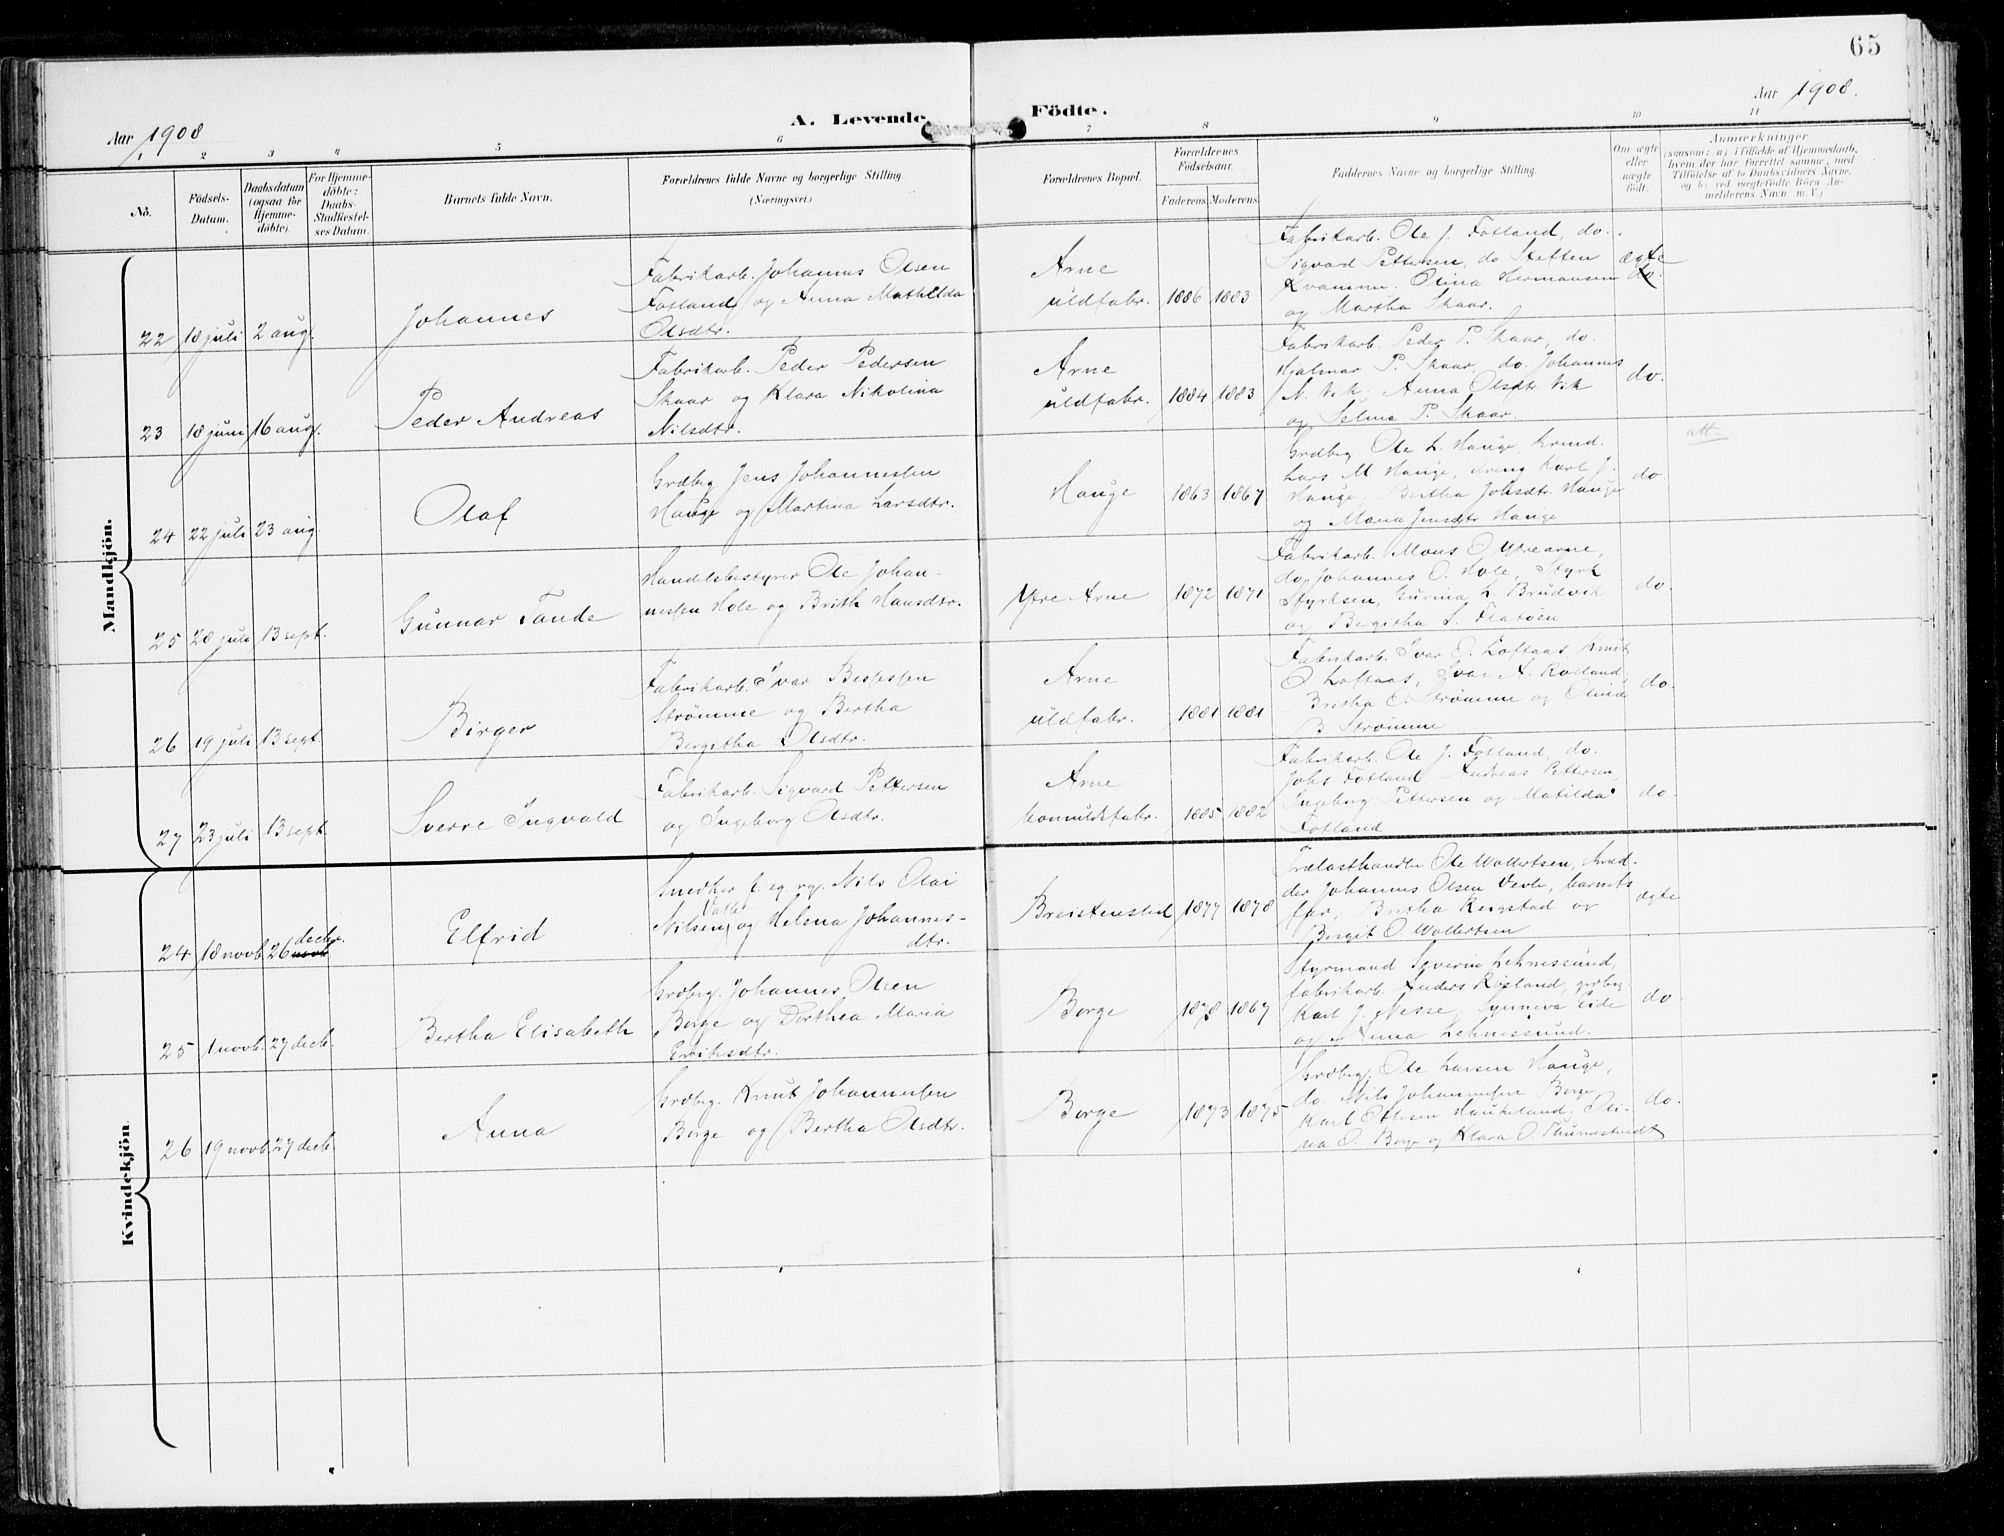 65
Aar 1908
A. Levende
Födte.
Aar 1908.
1 2 3 4 5 6 7 8 9 10 11
No.
Födsels-
Datum.
Daabsdatum
(ogsaa for
Hjemme-
döbte).
For Hjemme-
döbte:
Daabs-
Stadfæstel-
ses Datum.
Barnets fulde Navn.
Forældrenes fulde Navne og borgerlige Stilling.
(Næringsvei.)
Forældrenes Bopæl.
Forældrenes
Födselsaar.
Faderens. Moderens.
Faddernes Navne og borgerlige Stilling.
Om ægte
eller
uægte
födt.
Anmærkninger
(saasom: a) i Tilfælde af Hjemmedaab,
hvem der har forrettet samme, med
Tilföielse af to Daabsvidners Navne,
og b) ved uægtefödte Börn An-
melderens Navn m.V.)
Mandkjön.
22 18 juli 2 aug.
Johannes
Fabrikarb. Johannes Olsen
Fotland og Anna Mathilda
Olsdtr.
Arne
uldfabr.
1886 1883
Fabrikarb. Ole J. Fotland, do.
Sigvard Pettersen, do. Steffen
Kvamme. Olina Hermansen
og Martha Skaar.
ægte
do.
23 18 juni 16 aug.
Peder Andreas
Fabrikarb. Peder Pedersen
Skaar og Klara Nikolina
Nilsdtr.
Arne
uldfabr.
1884 1883
Fabrikarb. Peder P. Skaar, do.
Hjalmar P. Skaar, do. Johannes
N. Vik, Anna Olsdtr. Vik
og Selma P. Skaar.
do.
att
24 22 juli 23 aug.
Olaf
Grdbrg. Jens Johannessen
Hauge og Martina Larsdtr.
Hauge
1863 1867
Grdbrg. Ole L. Hauge,
Lars M Hauge, dreng Karl J.
Hauge, Bertha Johsdtr. Hauge
og Maria Jensdtr. Hauge
do.
25 28 juli 13 sept.
Gunnar Tande
Handelsbestyrer Ole Johan-
nessen Hole og Brith Hansdtr.
Ytre Arne
1872 1871
Fabrikarb. Mons O. Ytrearne,
do. Johannes O. Hole, Styrk
Styrksen, Gurina L. Brudvik
og Bergitha S. Flatöen
do.
26 19 juli 13 sept.
Birger
Fabrikarb. Ivar
Strømme og Bertha
Bergitha Olsdtr.
Arne
uldfabr.
1881 1881
Fabrikarb. Ivar O. Loftaas, Knut
O Loftaas, Ivar A. Rolland,
Britha E. Strømme og Olina
B Strømme
do.
27 23 juli 13 sept.
Sverre Ingvald
Fabrikarb. Sigvard Pettersen
og Ingeborg Olsdtr.
Arne
bomuldsfabr.
1885 1882
Fabrikarb. Ole J. Fotland, do.
Johs Fotland, Andreas Pettersen,
Ingeborg Pettersen og Matilda
Fotland
do.
Kvindekjön.
24 18 novb. 26 decbr. novb
Elfrid
Snedker f. eg. rg. Nils Olai
Nilsen Valle og Helena Johannes-
dtr.
Breistenstid
1877 1878
Trælasthandler Ole Wollertsen,
Johannes Olsen Vevle, barnets
far, Britha Reigstad og
Bergit O Wollertsen
ægte
25 1 novb. 27 decb.
Bertha Elisabeth
Grdbrg. Johannes Olsen
Borge og Dorthea Maria
Eriksdtr.
Borge
1878 1867
Styrmand Severin Lehnessund,
fabrikarb. Anders Røsland, grdbrg.
Karl J. Nesse, Synneva Eide
og Anna Lehnessund.
do.
26 19 novb. 27 decb.
Anna
Grdbrg. Knut Johannessen
Borge og Bertha Olsdtr.
Borge
1873 1875
Grdbrg. Ole Larsen Hauge,
do. Nils Johannessen Borge
Karl Olsen Haukeland, Oli-
na O. Borge og Klara O. Thunestvedt
do.